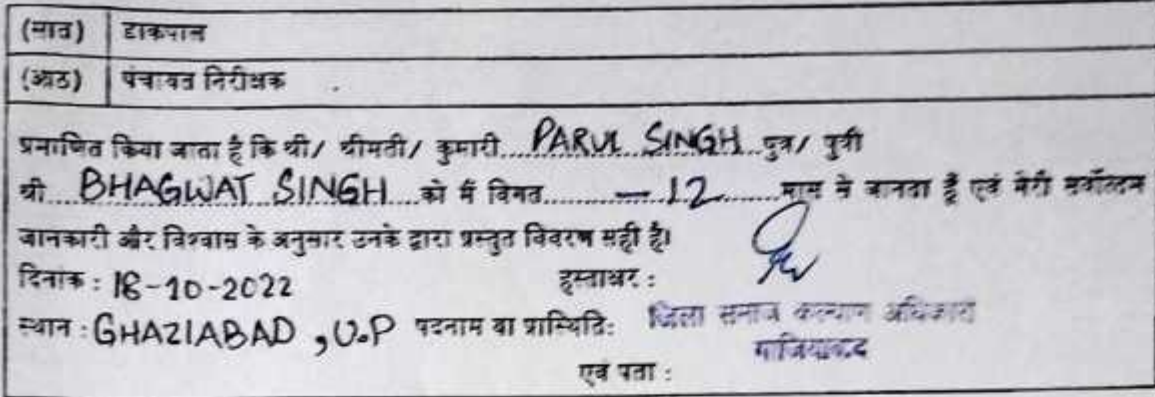 (सात) डाकपाल
(आठ) पंचायत निरीक्षक
प्रमाणित किया जाता है कि श्री/ श्रीमती/ कुमारी....PARUL SINGH...पुत्र/ पुत्री
श्री....BHAGWAT SINGH....को मैं विगत..........—12..........माह से जानता हूँ एवं मेरी सर्वोत्तम
जानकारी और विश्वास के अनुसार उनके द्वारा प्रस्तुत विवरण सही है।
दिनांक : 18-10-2022 हस्ताक्षर :
स्थान : GHAZIABAD , U.P पदनाम वा प्रास्थिति: जिला समाज कल्याण अधिकारी
गाजियाबाद
एवं पता :